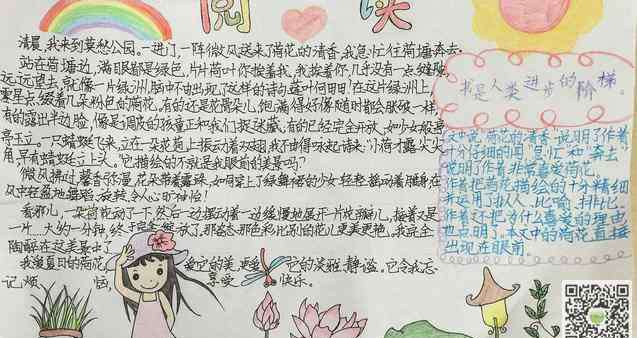 阅 读
清晨,我来到莫愁公园,一进门,一阵微风送来了荷花的清香,我急忙往荷塘奔去。
站在荷塘边,满眼都是绿色,片片荷叶你挨着我,我挨着你,几乎没有一点缝隙,
远远望去,就像一片绿洲,脑中不由出现了这样的诗句莲叶何田田!在这片绿洲上,
零星点缀着几朵粉色的荷花,有的还是花骨朵儿,饱满得好像随时都会破裂一样,
有的露出半边脸,像是调皮的孩童正和我们捉迷藏,有的已经完全开放,如少女般亭
亭玉立。一只蜻蜓飞来,立在一朵花苞上振动着双翅,我不由得咏起诗来:小荷才露尖尖
角,早有蜻蜓立上头。它描绘的不就是我眼前的美景吗?
微风拂过,馨香弥漫,花朵带着露珠,如同穿上了绿舞裙的少女轻轻摇动着身体在
风中轻盈地舞蹈,旋转,令人心旷神怡!
看那儿,一朵荷花动了一下,然后一边摆动着一边缓慢地展开一片花瓣儿,接着又是
一片……大约一分钟,终于完全绽放了,那姿态那色彩比别的花儿更美更艳。我完全
陶醉在这美景中了
我爱夏日的荷花, 爱它的美,更爱 它的淡雅、静谧。它令我忘
记烦 恼, 享受 快乐。
书是人类进步的阶梯。
文中从"荷花的清香"说明了作者
十分仔细的闻,"急忙"和"奔去"
说明了作者非常喜爱荷花。
作者把荷花描绘的十分精细
并运用了拟人、比喻、排比。
作者还把为什么喜爱的理由
也点明了。本文中的荷花直接
出现在眼前。